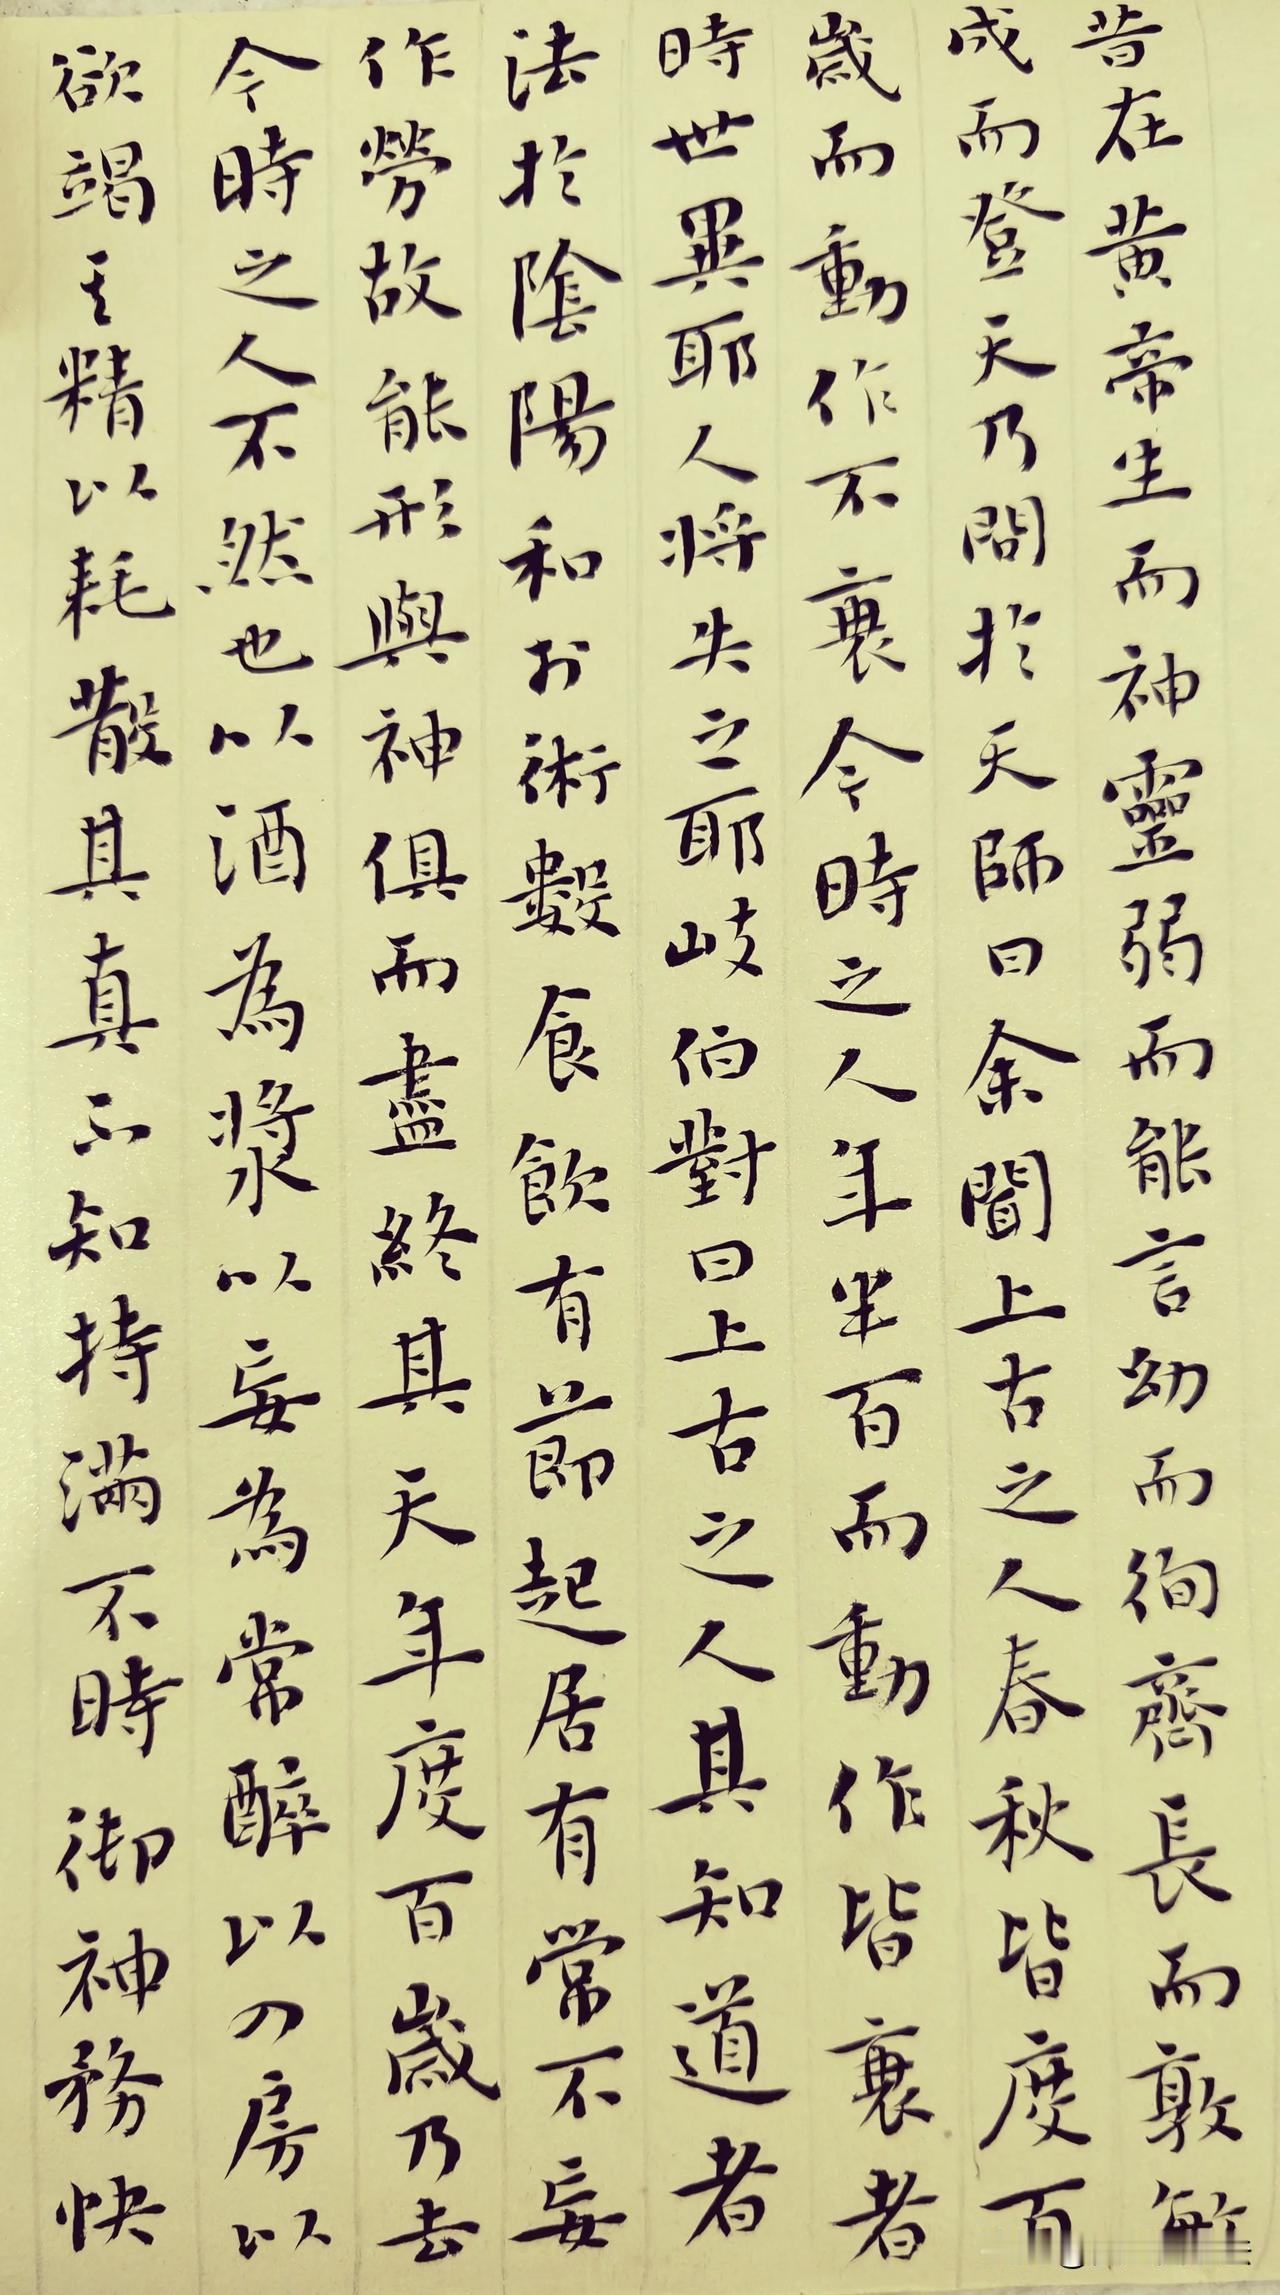 昔在黄帝生而神靈弱而能言幼而徇齊長而敦敏
成而登天乃問於天師曰余聞上古之人春秋皆度百
歲而動作不衰今時之人年半百而動作皆衰者
時世異耶人將失之耶岐伯對曰上古之人其知道者
法於陰陽和於術數食飲有節起居有常不妄
作勞故能形與神俱而盡終其天年度百歲乃去
今時之人不然也以酒為漿以妄為常醉以入房以
欲竭其精以耗散其真不知持滿不時御神務快